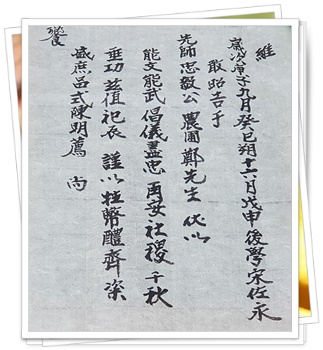 維
歲次庚子九月癸巳朔十六日戊申後學宋佐永
敢昭告于
先師忠毅公農圃鄭先生 伏以
能文能武倡儀盡忠再安社稷千秋
垂功玆值祀辰 謹以牲幣醴齊粢
盛庶品式陳明薦 尚
饗